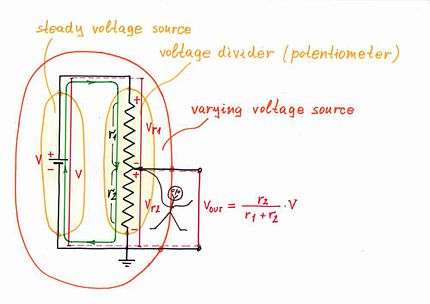 steady voltage source
voltage divider (potentiometer)
varying voltage source
+
r1
Vr1
V
+
-
V
-
+
r2
Vr2
-
VOUT = r2 / r1 + r2 · V